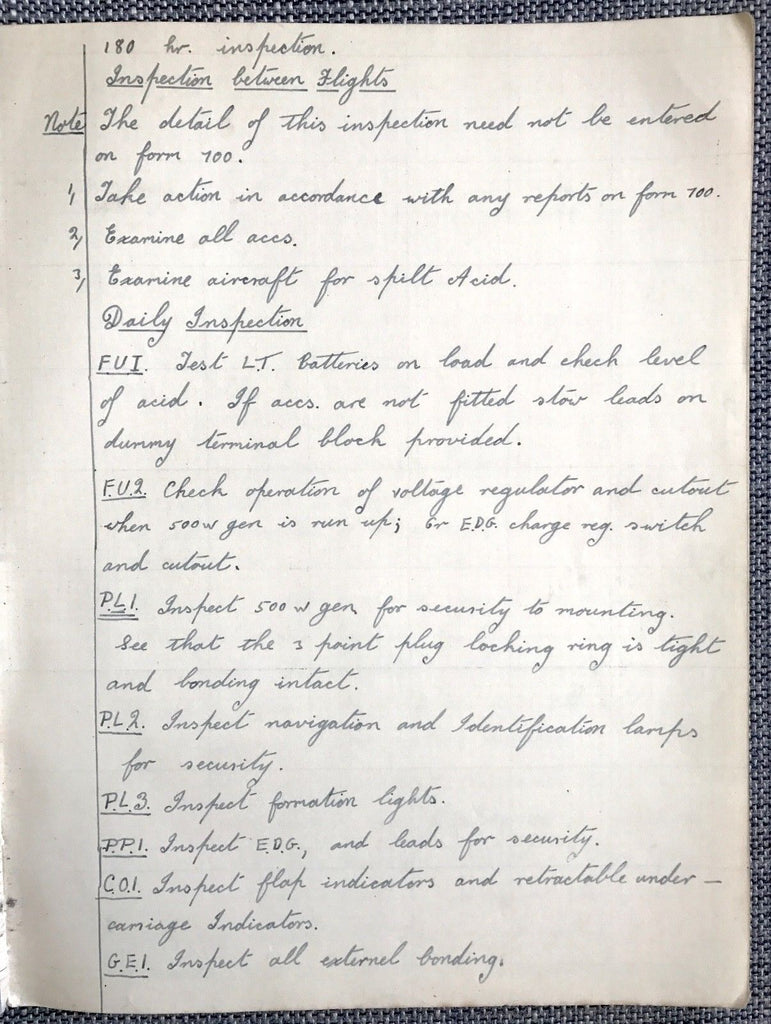 180 hr. inspection.
Inspection between Flights
Note The detail of this inspection need not be entered
on form 700.
1, Take action in accordance with any reports on form 700.
2, Examine all accs.
3, Examine aircraft for spilt Acid.
Daily Inspection
F.U.I. Test L.T. batteries on load and check level
of acid. If accs. are not fitted stow leads on
dummy terminal block provided.
F.U.2. Check operation of voltage regulator and cutout
when 500w gen is run up; Or E.D.G. charge reg. switch
and cutout.
P.L.1. Inspect 500 w gen. for security to mounting.
See that the 3 point plug locking ring is tight
and bonding intact.
P.L.2. Inspect navigation and Identification lamps
for security.
P.L.3. Inspect formation lights.
P.P.1. Inspect E.D.G., and leads for security.
C.O.1. Inspect flap indicators and retractable under-
carriage Indicators.
G.E.1. Inspect all externel bonding.